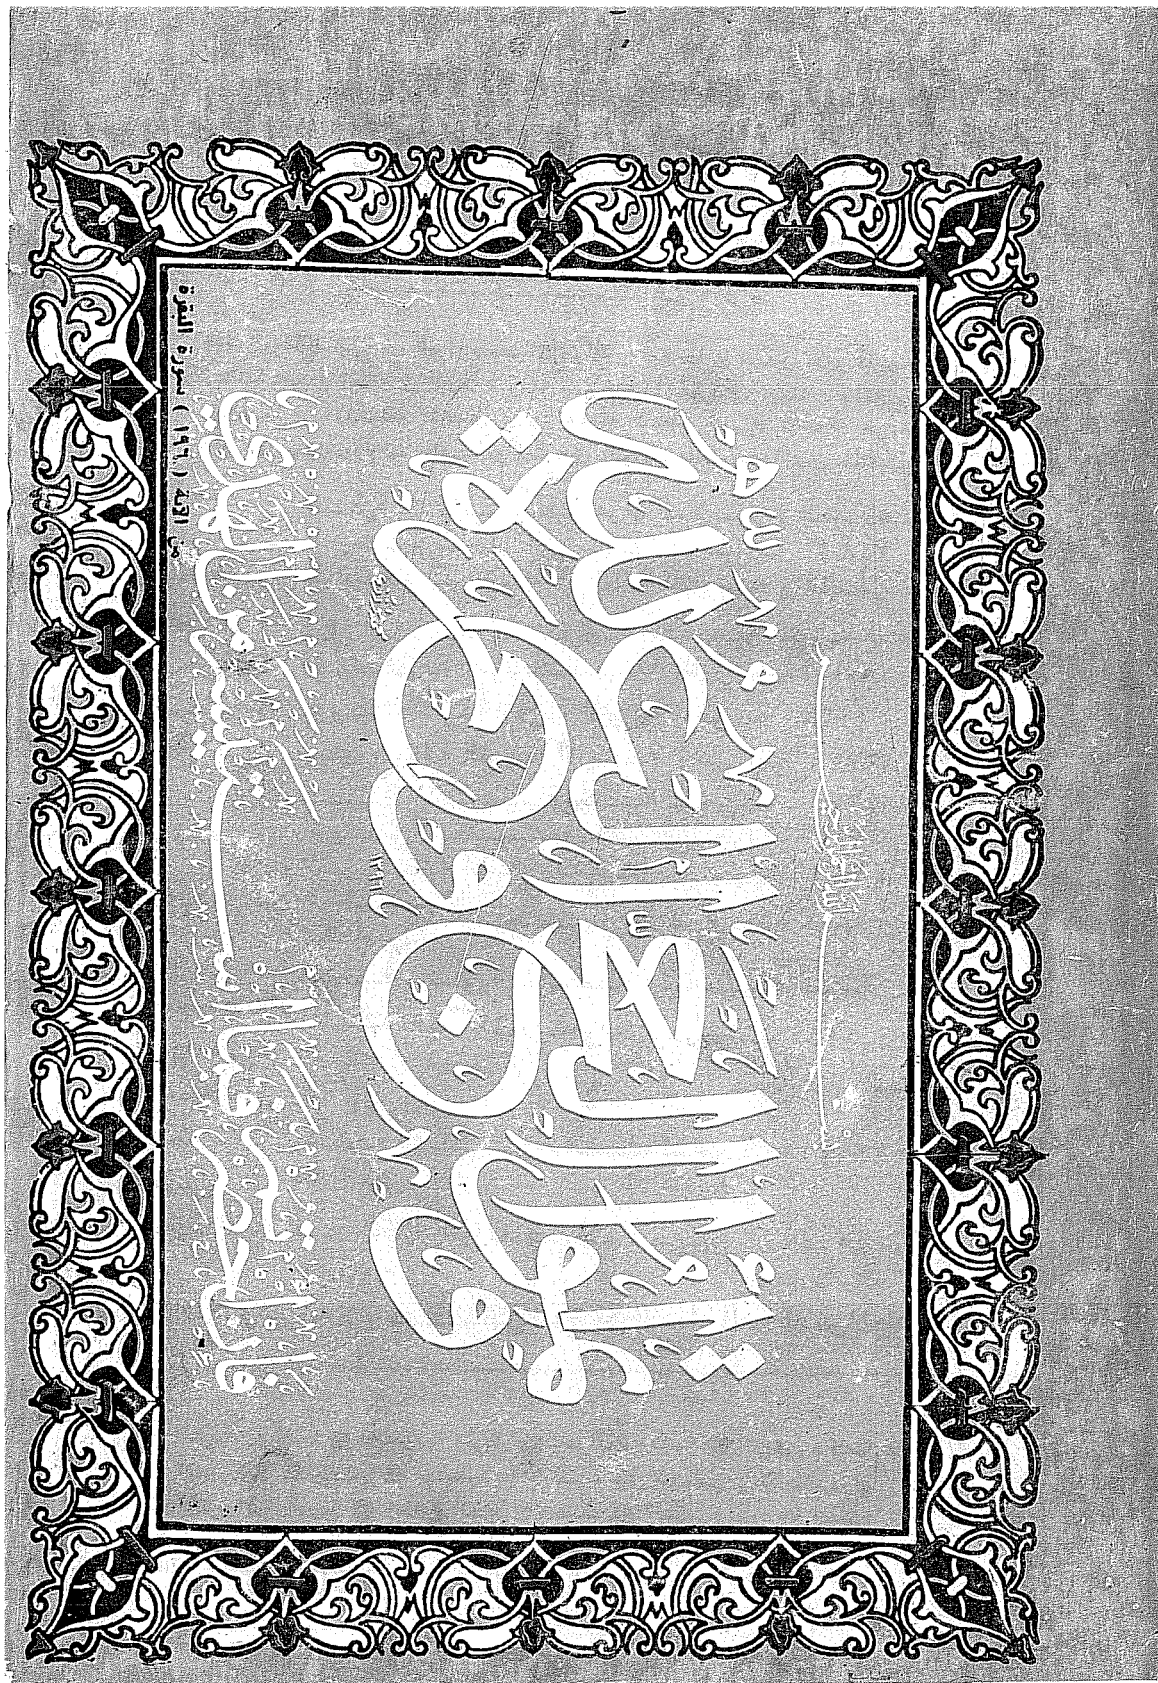 بسم الله الرحمن الرحيم
وأتموا الحج والعمرة لله
فإن أحصرتم فما استيسر من الهدي
سورة البقرة ( ١٩٦ ) من آية